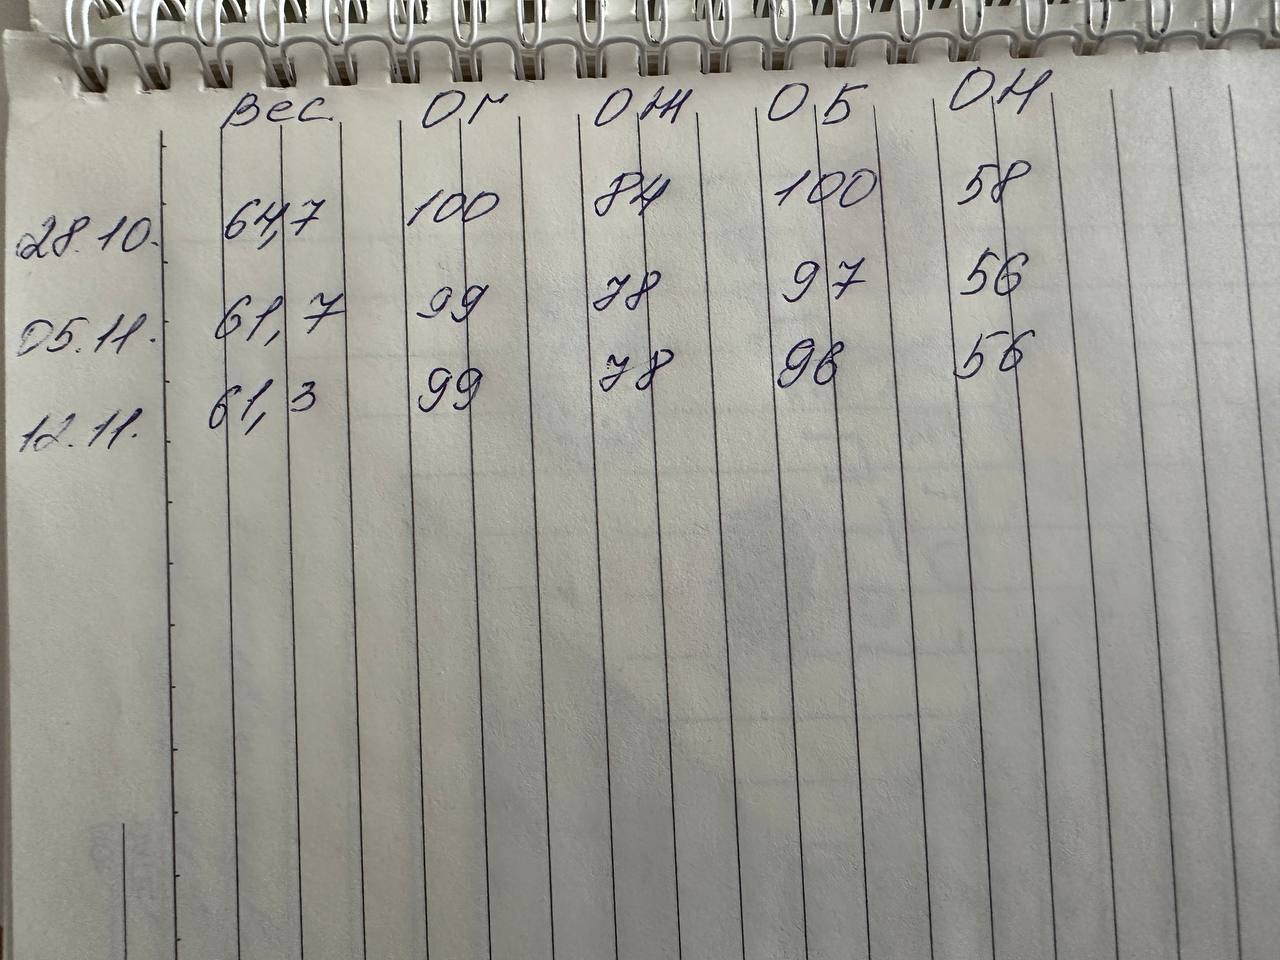 Вес. ОГ ОЖ ОБ ОН
28.10. 64,7 100 84 100 58
05.11. 61,7 99 78 97 56
12.11. 61,3 99 78 96 56